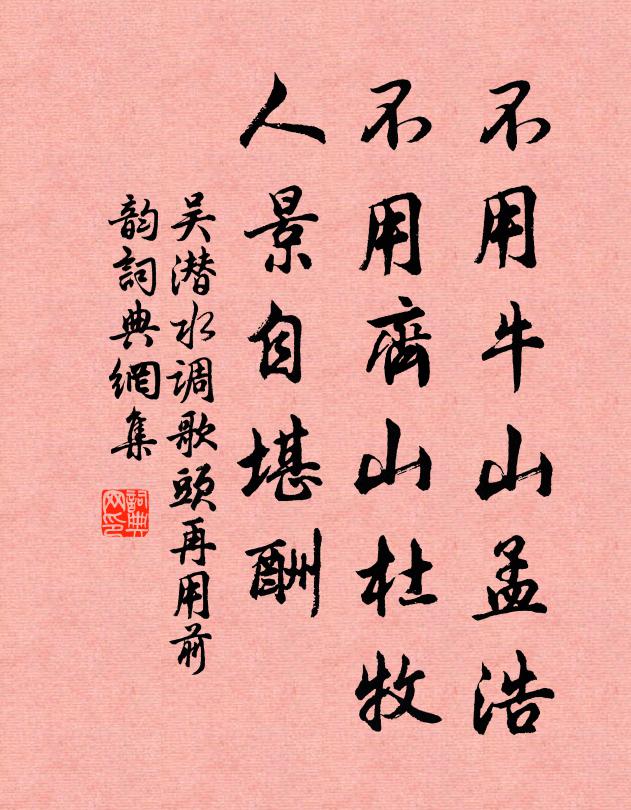 不用牛山孟浩
不用齊山杜牧
人景自堪酬
吴潜水调歌頭再用前
韵詞典網集
詞典网印